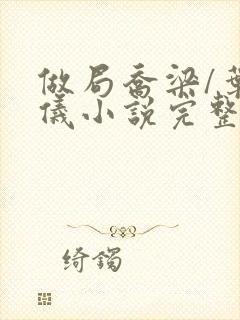 做局喬梁/葉
儀小說完整
綺鐲